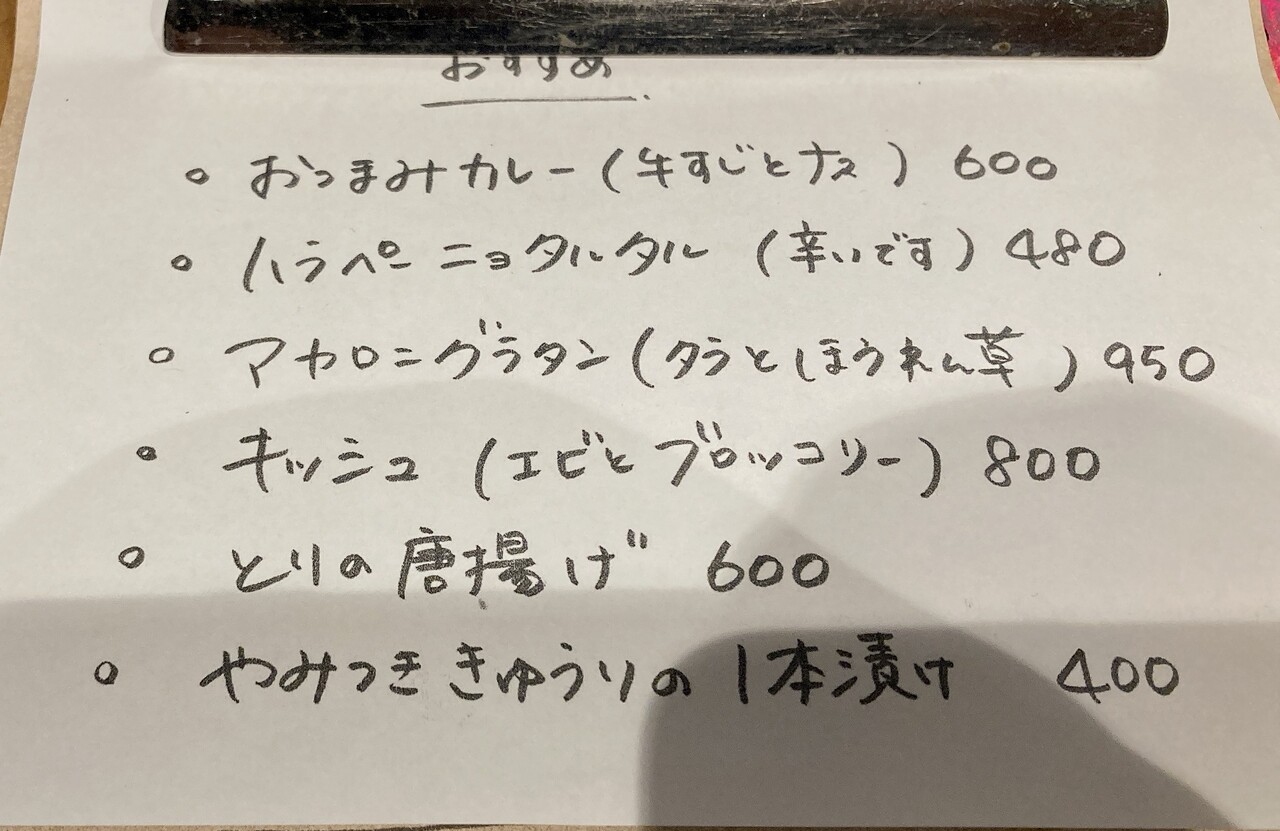 おすすめ
○ おつまみカレー(牛すじとナス) 600
○ ハラペーニョタルタル (辛いです) 480
○ マカロニグラタン(タラとほうれん草) 950
○ キッシュ (エビとブロッコリー) 800
○ とりの唐揚げ 600
○ やみつききゅうりの1本漬け 400